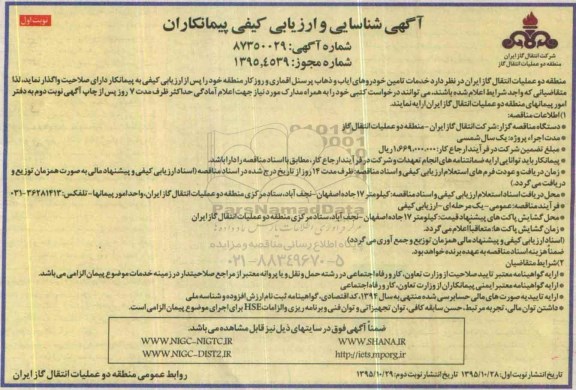 نوبت اول
آگهی شناسایی و ارزیابی کیفی پیمانکاران
شماره آگهی: ۸۷۳۵۰۰۲۹
شماره مجوز: ۱۳۹۵,۴۵۳۹
شرکت انتقال گاز ایران
منطقه دو عملیات انتقال گاز
منطقه دو عملیات انتقال گاز ایران در نظر دارد خدمات تامین خودروهای ایاب و ذهاب پرسنل اقماری و روزکار منطقه خود را پس از ارزیابی کیفی به پیمانکار دارای صلاحیت واگذار نماید، لذا
متقاضیانی که واجد شرایط اعلام شده باشند، می توانند درخواست کتبی خود را به همراه مدارک مورد نیاز جهت اعلام آمادگی حداکثر ظرف مدت ۷ روز پس از چاپ آگهی نوبت دوم به دفتر
امور پیمانهای منطقه دو عملیات انتقال گاز ایران ارایه نمایند.
۱) اطلاعات مناقصه:
• دستگاه مناقصه گزار: شرکت انتقال گاز ایران - منطقه دو عملیات انتقال گاز
• مدت اجرای پروژه: یک سال شمسی
• مبلغ تضمین شرکت در فرآیند ارجاع کار: ۱,۶۶۹,۰۰۰,۰۰۰ ریال
• پیمانکار باید توانایی ارایه ضمانتنامه های انجام تعهدات و شرکت در فرآیند ارجاع کار، مطابق با اسناد مناقصه را دارا باشد.
• زمان دریافت و عودت فرم های استعلام ارزیابی کیفی و اسناد مناقصه: ظرف مدت ۱۴ روز از تاریخ درج شده در اسناد مناقصه (اسناد ارزیابی کیفی و پیشنهاد مالی به صورت همزمان توزیع و
دریافت می گردد.)
• محل دریافت اسناد استعلام ارزیابی کیفی و اسناد مناقصه: کیلومتر ۱۷ جاده اصفهان - نجف آباد، ستاد مرکزی منطقه دو عملیات انتقال گاز ایران، واحد امور پیمانها - تلفکس: ۳۶۲۸۱۴۱۳-۰۳۱
• فرآیند مناقصه: عمومی - یک مرحله ای - ارزیابی کیفی
• محل گشایش پاکت های پیشنهاد قیمت: کیلومتر ۱۷ جاده اصفهان - نجف آباد، ستاد مرکزی منطقه دو عملیات انتقال گاز ایران
• زمان گشایش پاکت ها: متعاقبا اعلام می گردد.
(اسناد ارزیابی کیفی و پیشنهاد مالی همزمان توزیع و جمع آوری می گردد)
ضمناً هزینه اسناد مناقصه به عهده برنده خواهد بود.
۲) شرایط متقاضیان
• ارایه گواهینامه معتبر تایید صلاحیت از وزارت تعاون، کار و رفاه اجتماعی در رشته حمل و نقل و یا پروانه معتبر از مراجع صلاحیتدار در زمینه خدمات موضوع پیمان الزامی می باشد.
• ارایه گواهینامه معتبر ایمنی پیمانکاران از وزارت تعاون، کار و رفاه اجتماعی
• ارایه تاییدیه صورت های مالی حسابرسی شده منتهی به سال ۱۳۹۴، کد اقتصادی، گواهینامه ثبت نام ارزش افزوده و شناسه ملی
• داشتن توان مالی، تجربه مرتبط، حسن سابقه کافی، توان تجهیزاتی و توان فنی و برنامه ریزی والزامات HSE برای اجرای موضوع پیمان الزامی است.
ضمناً آگهی فوق در سایتهای ذیل نیز قابل مشاهده می باشد.
WWW.SHANA.IR
WWW.NIGC-NIGTC.IR
http://iets.mporg.ir
WWW.NIGC-DIST2.IR
تاریخ انتشار نوبت اول: ۱۳۹۵/۱۰/۲۸ تاریخ انتشار نوبت دوم: ۱۳۹۵/۱۰/۲۹
روابط عمومی منطقه دو عملیات انتقال گاز ایران
ParsNamadData
پایگاه اطلاع رسانی مناقصه و مزایده
۰۲۱-۸۸۳۴۹۶۷۰-۵